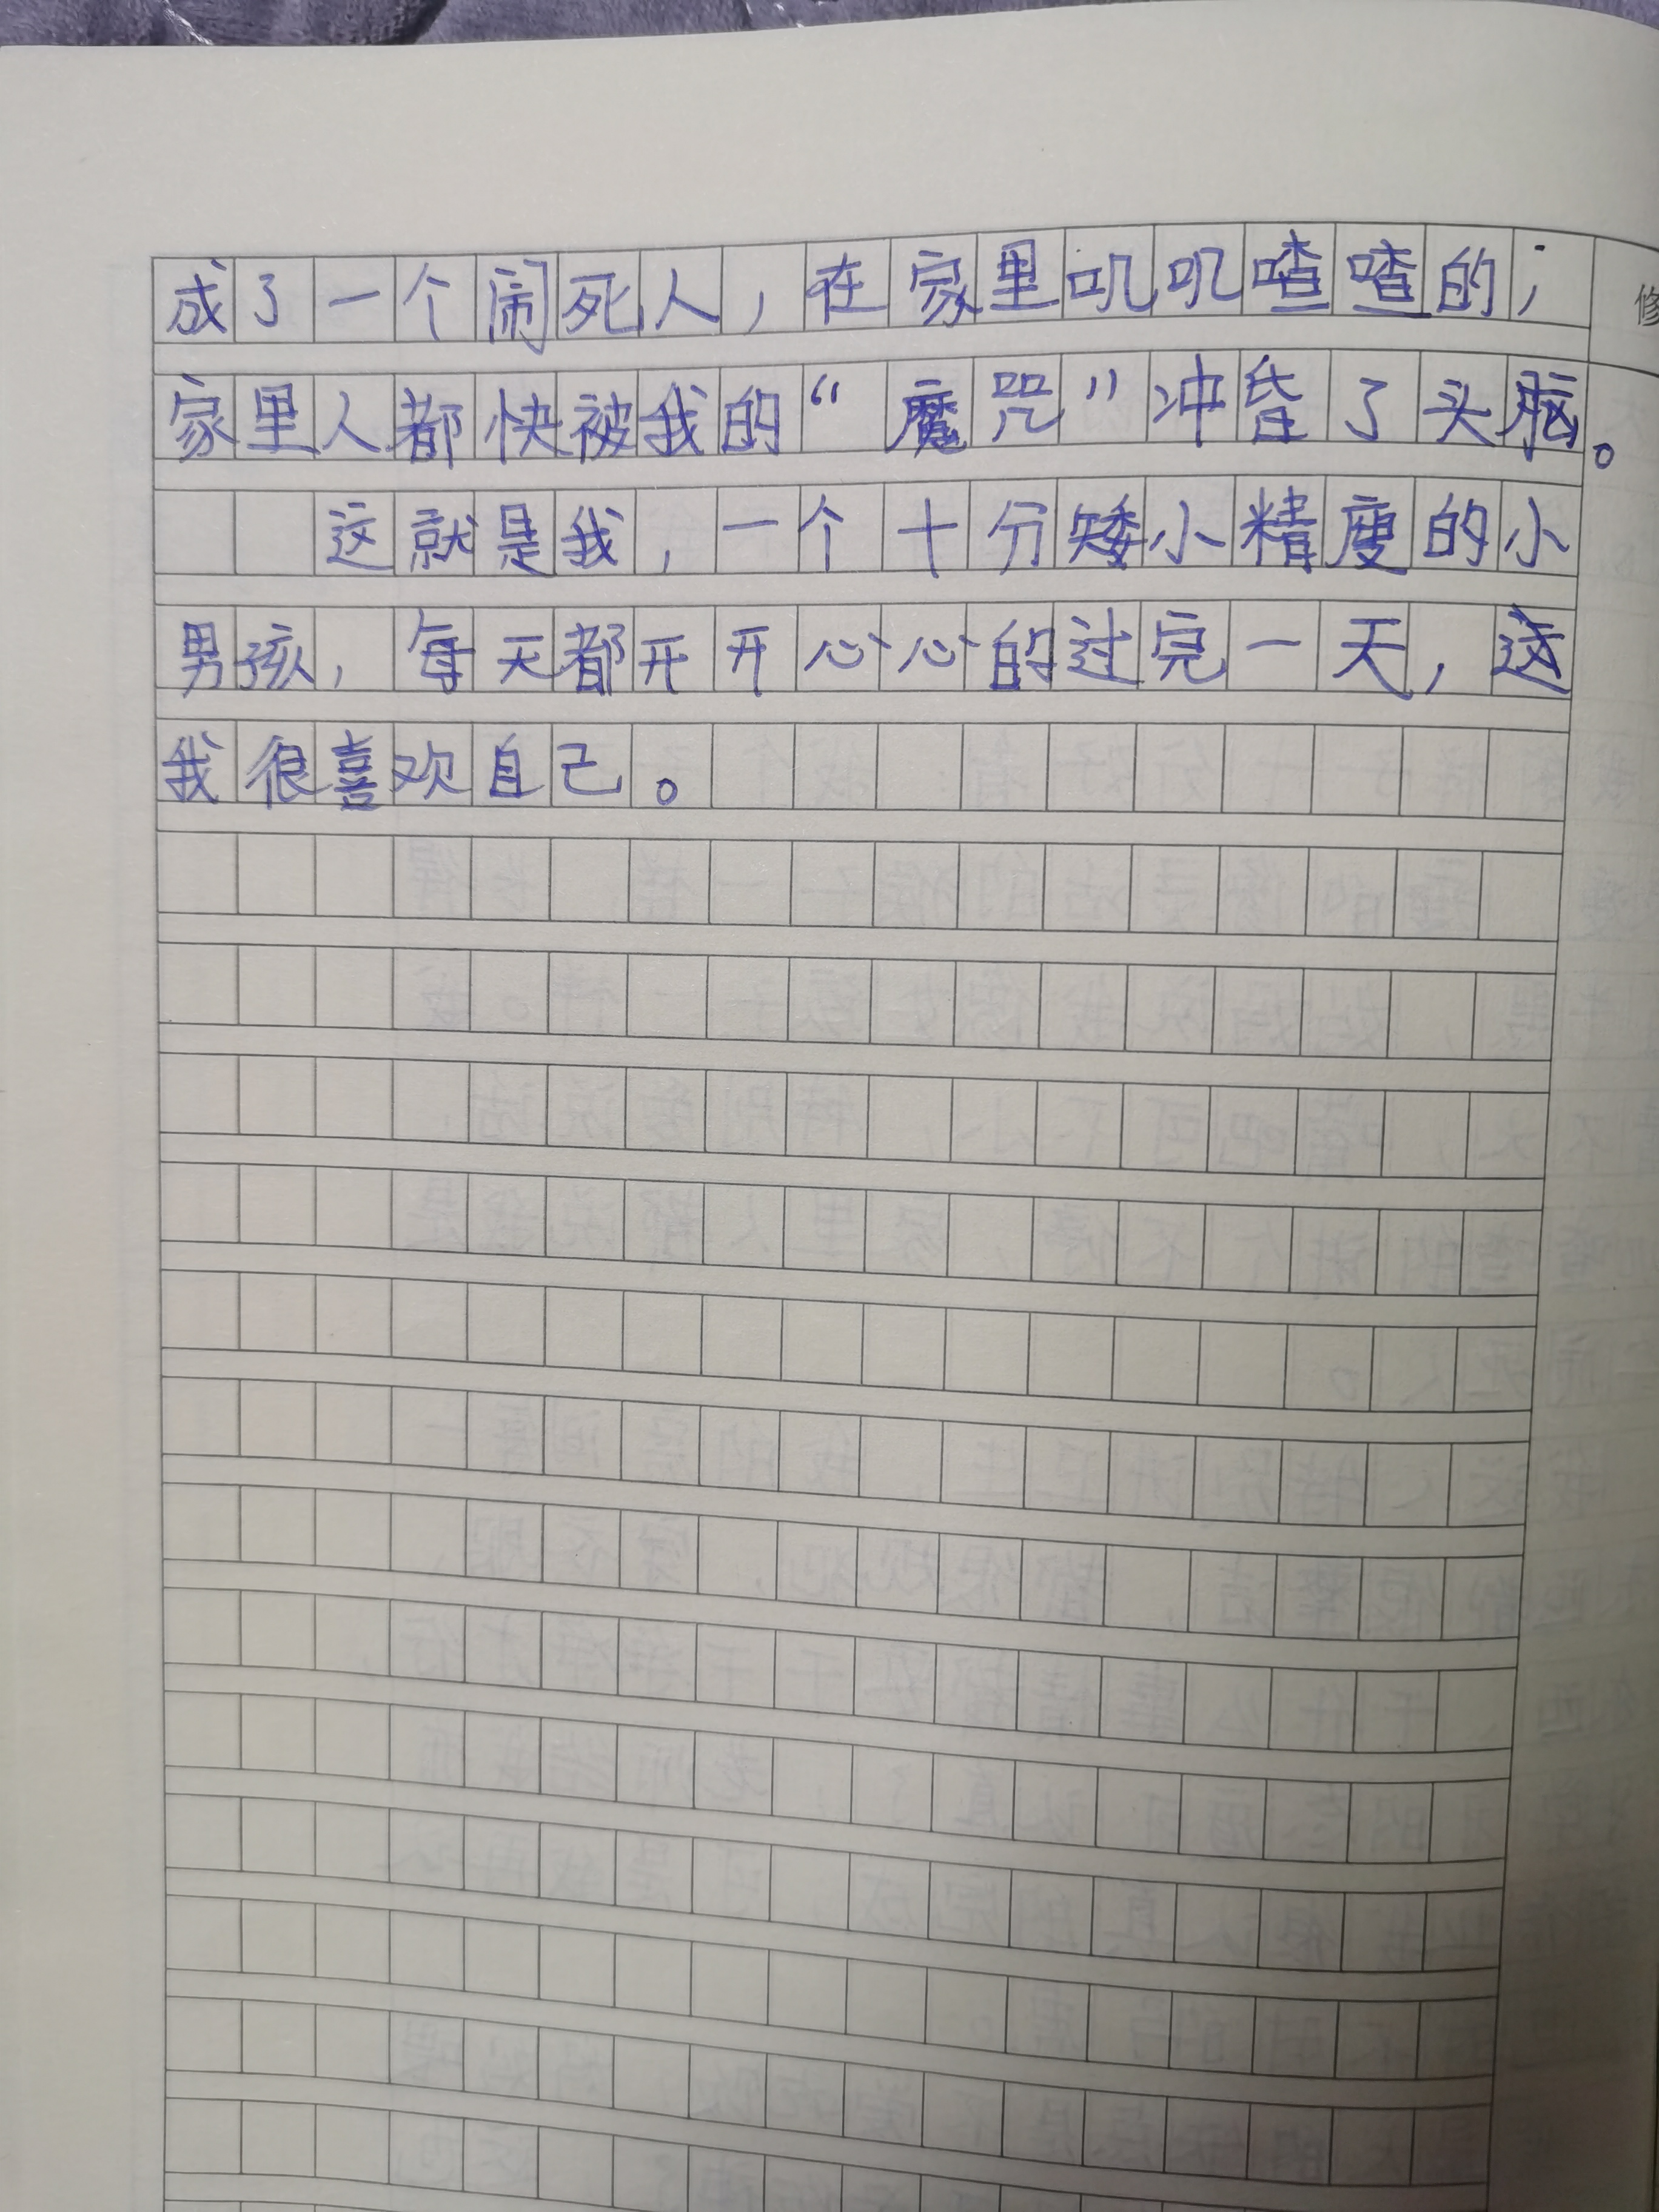 成了一个闹死人，在家里叽叽喳喳的，
家里人都快被我的“魔咒”冲昏了头脑。
这就是我，一个十分矮小精瘦的小
男孩，每天都开开心心的过完一天，这
我很喜欢自己。
修